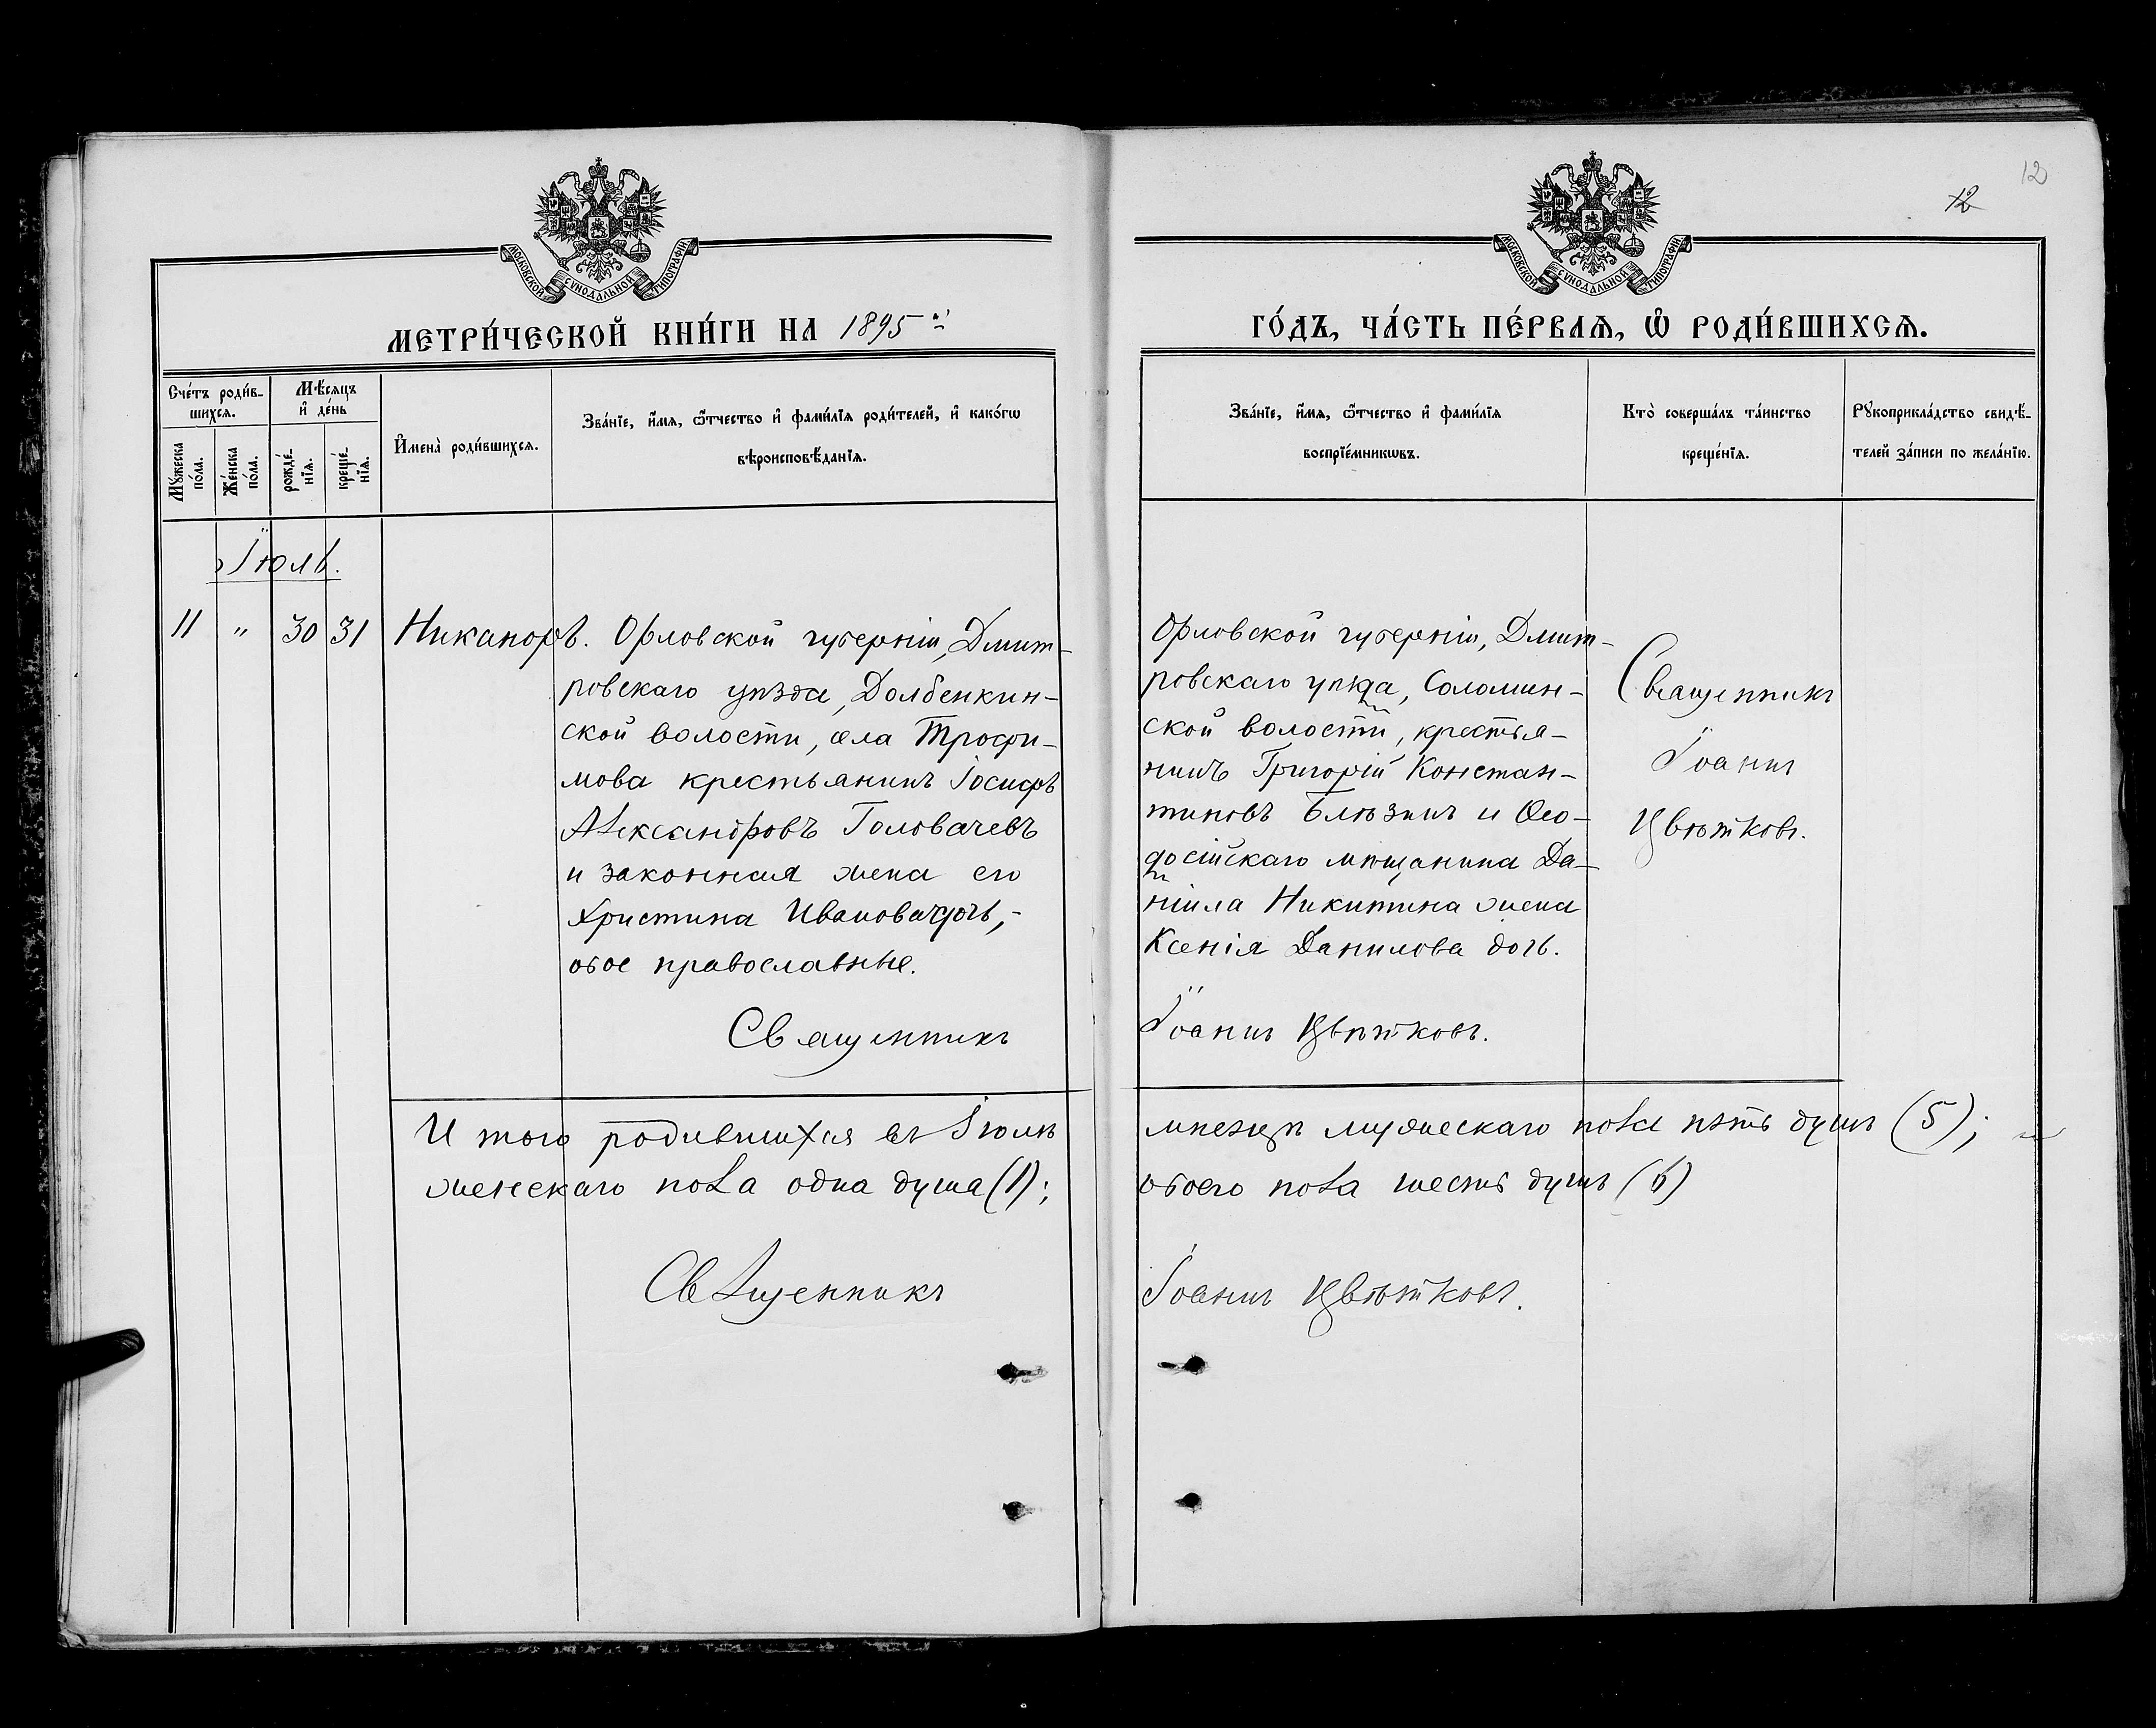 12
12
МОСКОВСКОЙ СѴНОДАЛЬНОЙ ТИПОГРАФІИ
МОСКОВСКОЙ СѴНОДАЛЬНОЙ ТИПОГРАФІИ
МЕТРИ́ЧЕСКОЙ КНИ́ГИ НА 1895 й
ГО́ДЪ, ЧА́СТЬ ПЕ́РВАѦ, Ѽ РОДИ́ВШИХСѦ.
Сче́тъ роди́в-
шихсѧ.
Мѣ́сѧцъ
и҆ де́нь
Мꙋ́жеска
по́ла.
Же́нска
по́ла.
рожде́-
нїѧ.
креще́-
нїѧ.
И҆мена̀ роди́вшихсѧ.
Зва́нїе, и҆́мѧ, ѻ҆́тчество и҆ фами́лїѧ роди́телей, и҆ како́гѡ
вѣроисповѣ́данїѧ.
Зва́нїе, и҆́мѧ, ѻ҆́тчество и҆ фами́лїѧ
воспрїе́мникѡвъ.
Кто̀ соверша́лъ та́инство
креще́нїѧ.
Рꙋкоприкла́дство свидѣ́-
телей за́писи по жела́нїю.
Іюль.
11 " 30 31 Никаноръ.
Орловской губерніи, Дмит-
ровскаго уѣзда, Долбенкин-
ской волости, села Трофи-
мова крестьянинъ Іосифъ
Александровъ Головачевъ
и законная жена его
Христина Иванова дочь,-
обое православные.
Священникъ
Орловской губерніи, Дмит-
ровскаго уѣзда, Соломин-
ской волости, крестья-
нинъ Григорій Констан-
тиновъ Блѣзнинъ и Ѳео-
досійскаго мѣщанина Да-
ніила Никитина жена
Ксенія Данилова дочь.
Іоаннъ Цвѣтковъ.
Священникъ
Іоаннъ
Цвѣтковъ.
И того родившихся въ Іюлѣ
мѣсяцѣ мужескаго пола пять душъ (5);
женскаго пола одна душа (1);
обоего пола шесть душъ (6)
Священникъ
Іоаннъ Цвѣтковъ.